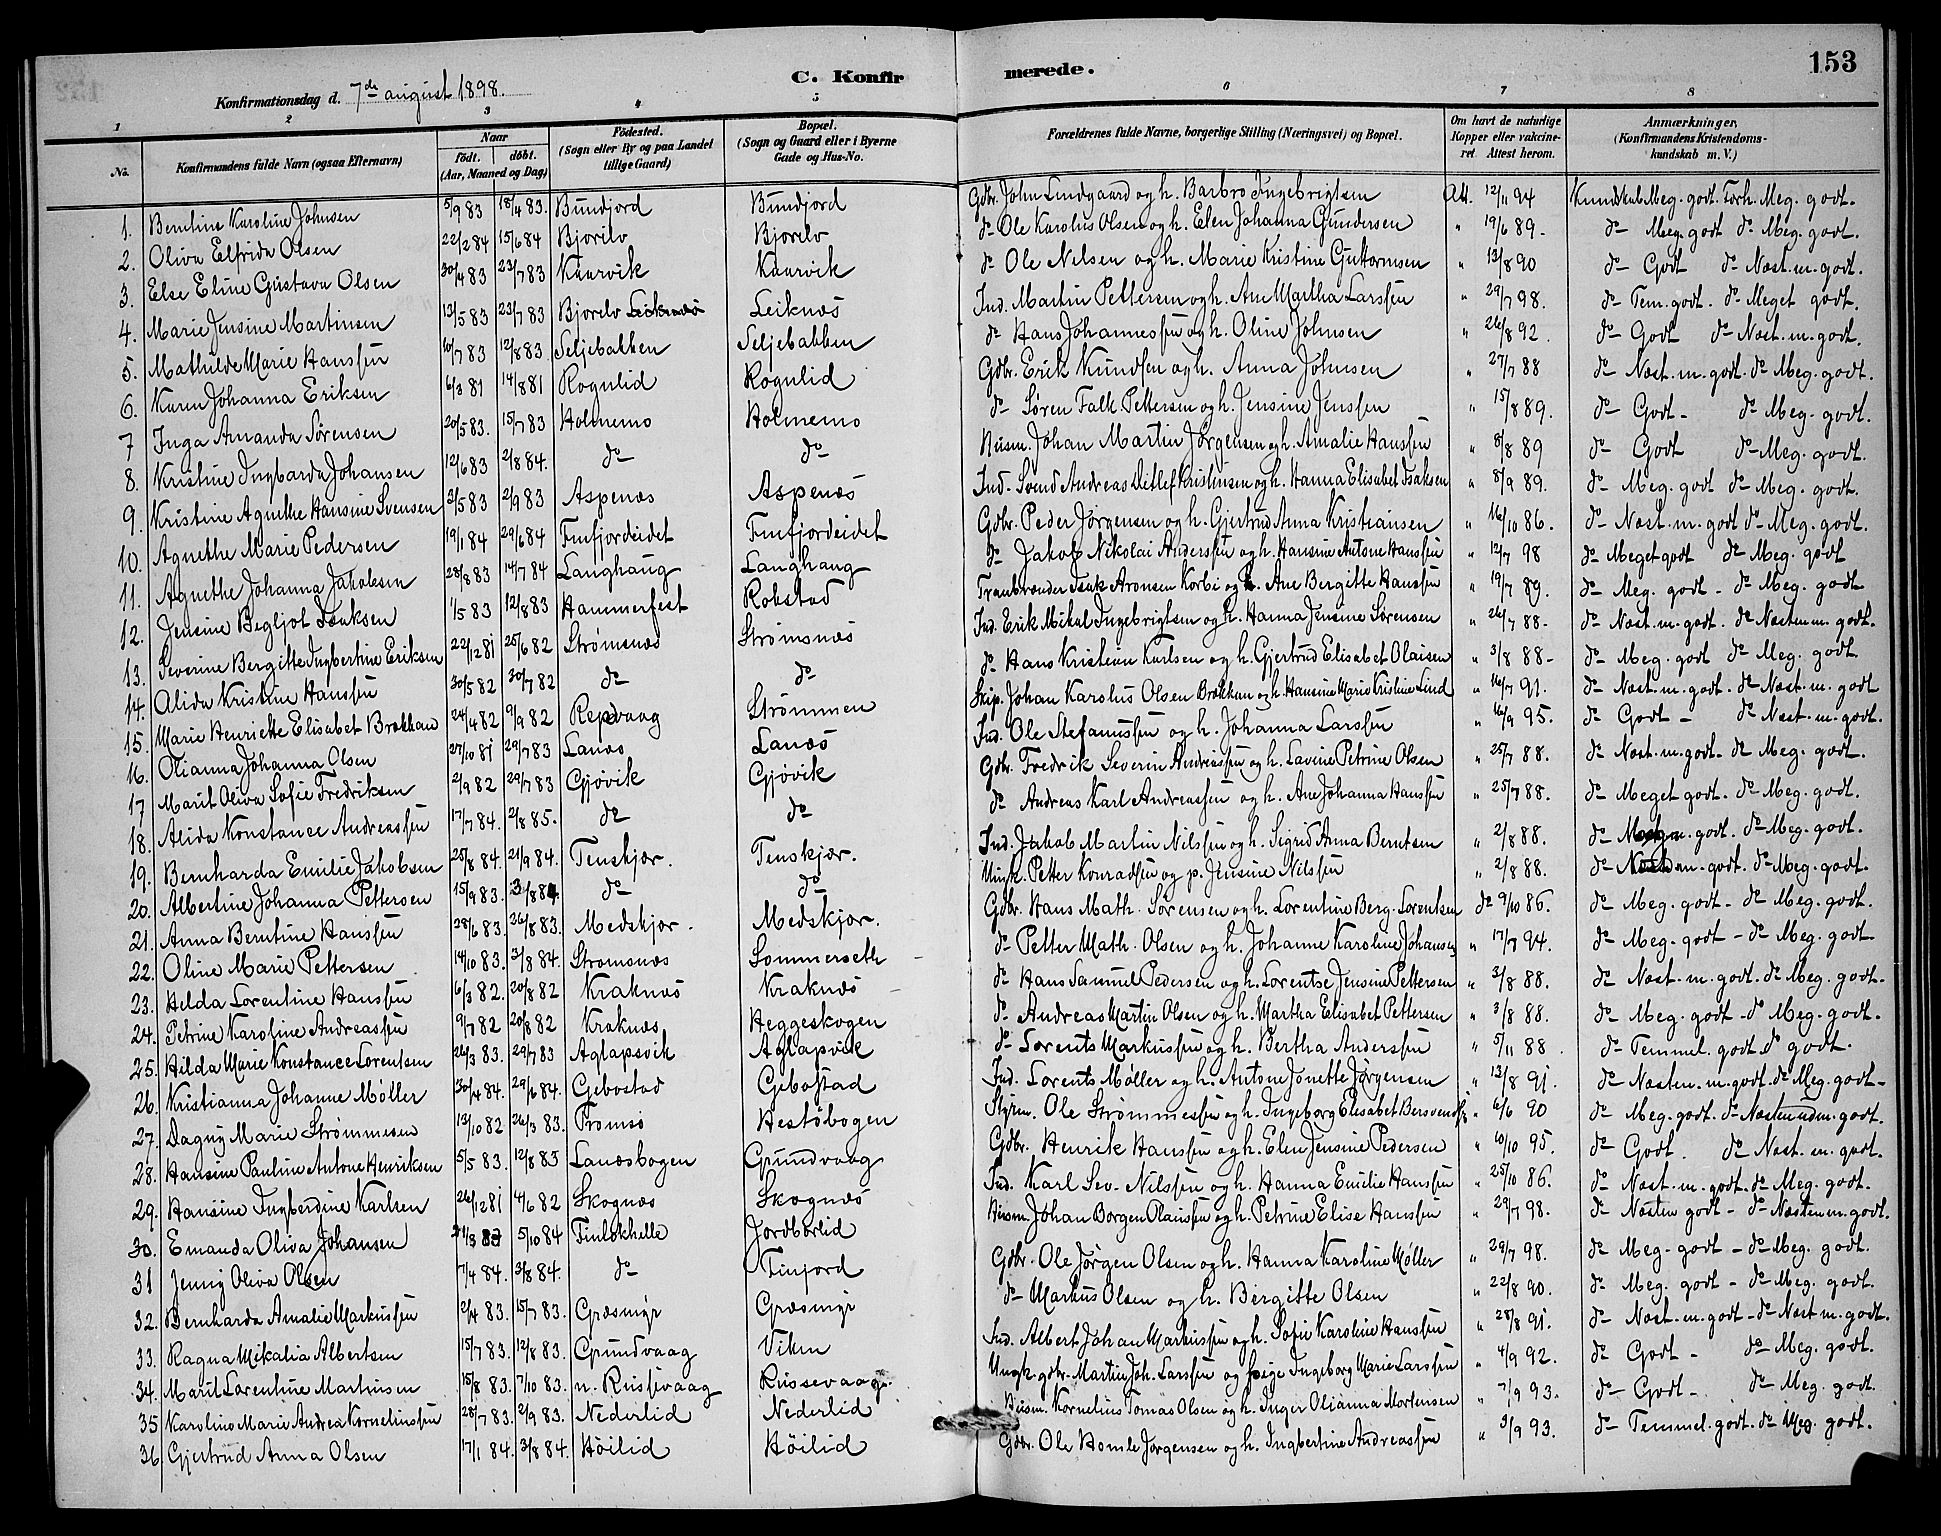 153
C. Konfirmerede.
Konfirmationsdag d. 7de august 1898.
1 2 3 4 5 6 7 8
No. Konfirmandens fulde Navn (ogsaa Efternavn) Naar födt. döbt. (Aar, Maaned og Dag) Födested. (Sogn eller By og paa Landet tillige Gaard) Bopæl. (Sogn og Gaard eller i Byerne Gade og Hus-No. Forældrenes fulde Navne, borgerlige Stilling (Næringsvei) og Bopæl. Om havt de naturlige Kopper eller vakcineret. Attest herom. Anmærkninger, (Konfirmandens Kristendomskundskab m. V.)
1. Berntine Karoline Johnsen 5/9 83 18/4 83. Bundjord Bundjord Gdbr. John Lindgaard og h. Barbro Ingebrigtsen Att. 12/11 94 Kundskab Meg. godt. Forh. Meg. godt.
2. Oliva Elfrida Olsen 22/2 84 15/6 84 Bjorelv Bjorelv do Ole Karolus Olsen og h. Elen Johanna Gundersen " 19/6 89. do Meg. godt do Meg. godt.
3. Else Eline Gustava Olsen 30/4 83 23/7 83 Kaarvik Kaarvik do Ole Nilsen og h. Marie Kristine Guttormsen " 13/8 90 do Godt do Næst. m. godt.
4. Marie Jensine Martinsen 13/5 83 23/7 83 Bjorelv Leiknæs Leiknæs Ind. Martin Pettersen og h. Ane Martha Larssen " 29/7 98. do Tem. godt. do Meget godt.
5. Mathilde Marie Hanssen 10/7 83 12/8 83. Seljebakken Seljebakken do Hans Johannessen og h. Oline Johnsen " 26/8 92. do Godt do Næst. m. godt.
6. Karen Johanna Eriksen 6/3 81 14/8 81 Rognlid Rognlid Gdbr. Erik Knudsen og h. Anna Johnsen " 27/7 88 do Næst. m. godt. do Meg. godt.
7 Inga Amanda Sørensen 20/5 83. 15/7 83 Holmemo Holmemo do Søren Falk Pettersen og h. Jensine Jenssen " 15/8 89. do Godt - do Meg. godt.
8. Kristine Ingbarda Johansen 12/6 83 2/8 84. do do Husm. Johan Martin Jørgensen og h. Amalie Hanssen " 8/8 89 do Godt do Meg. godt.
9. Kristine Agnethe Hansine Svensen 3/5 83 2/9 83 Aspenæs Aspenæs Ind. Svend Andreas Detlef Kristensen og h. Hanna Elisabet Isaksen " 8/9 89. do Meg. godt do Meg. godt.
10. Agnethe Marie Pedersen 19/1 84 29/6 84 Finfjordeidet Finfjordeidet Gdbr. Peder Jørgensen og h. Gjertrud Anna Kristiansen " 16/10 86. do Næst. m. godt do Meg. godt.
11. Agnethe Johanna Jakobsen 28/8 83 14/7 84 Langhaug Langhaug do Jakob Nikolai Anderssen og h. Hansine Antone Hanssen " 12/7 98 do Meget godt do Meg. godt
12. Jensine Begljot Isaksen 1/5 83 12/8 83 Hammerfest Robstad Tranbrænder Isak Aronsen Korbi og h. Ane Bergitte Hanssen " 19/7 89. do Meg. godt - do Meg. godt
13. Severine Bergitte Ingbertine Eriksen 22/12 81 25/6 82 Strømsnæs Strømsnæs Ind. Erik Mikal Ingebrigtsen og h. Hanna Jensine Sørensen " 26/7 88- do Næst. m. godt. do Næsten m. godt.
14. Alida Kristine Hanssen 30/5 82 30/7 82 do do do Hans Kristian Karlsen og h. Gjertrud Elisabet Olaisen " 3/8 88- do Meg. godt do Meg. godt.
15. Marie Henriette Elisabet Brækkan 24/4 82 9/9 82 Repvaag Strømmen Skip. Johan Karolus Olsen Brækkan og h. Hansine Marie Kristine Lind " 16/7 91. do Næst. m. godt. do Næst. m. godt
16. Olianna Johanna Olsen 27/10 81 29/7 83 Lanæs Lanæs Ind. Ole Stefanussen og h. Johanna Larssen " 16/9 95. do Godt - do Næst. m. godt.
17 Marit Oliva Sofie Fredriksen 2/9 82 29/7 83 Gjøvik Gjøvik Gdbr. Fredrik Severin Andreassen og h. Lavine Petrine Olsen " 25/7 88. do Næst. m. godt. do Meg. godt.
18. Alida Konstance Andreassen 17/7 84. 2/8 85. do do do Andreas Karl Andreassen og h. Ane Johanna Hanssen " 25/7 88. do Meget godt. do Meg. godt.
19. Bernharda Emilie Jakobsen 25/8 84. 21/9 84. Tenskjær. Tenskjær. Ind. Jakob Martin Nilssen og h. Sigrid Anna Berntsen " 2/8 88. do m. godt. do Meg. godt.
20. Albertine Johanna Pettersen 15/9 83. 3/8 84 do do Ungk. Petter Konradsen og p. Jensine Nilssen " 2/8 88. do m. godt. do Meg. godt.
21. Anna Berntine Hanssen 28/6 83. 26/8 83. Medskjær. Medskjær. Gdbr. Hans Math. Sørensen og h. Lorentine Berg. Lorentsen do 9/10 86. do Meg. godt - do Meg. godt.
22. Oline Marie Pettersen 14/10 83. 3/8 84. Strømsnæs Sommerseth do Petter Math. Olsen og h. Johanne Karoline Johansen " 17/7 94. do Meg. godt - do Meg. godt
23. Helda Lorentine Hanssen 6/3 82. 20/8 82 Kraknæs Kraknæs do Hans Samuel Pedersen og h. Lorentse Jensine Pettersen " 3/8 88. do Næst. m. godt. do Meg. godt.
24. Petrine Karoline Andreassen 9/7 82 20/8 82 Kraknæs Heggeskogen do Andreas Martin Olsen og h. Martha Elisabet Pettersen " 3/8 88. do Meg. godt - do Meg. godt.
25. Hilda Marie Konstance Lorentsen 26/3 83. 29/7 83 Aglapsvik Aglapsvik do Lorents Markussen og h. Bertha Anderssen " 5/11 88. do Temmel. godt. do godt.
26. Kristianna Johanne Møller 30/4 84. 29/6 84. Gebostad Gebostad Ind. Lorents Møller og h. Antone Jonette Jørgensen " 13/8 91. do Næsten. m. godt. do Meg. godt.
27. Dagny Marie Strømmesen 13/10 82 26/3 83. Tromsø Hestøbogen Styrm. Ole Strømmesen og h. Ingeborg Elisabet " 6/6 90 do Meg. godt. do Næsten udm. godt.
28. Hansine Pauline Antone Henriksen 5/5 83. 12/8 83 Lanæsbogen Grundvaag Gdbr. Henrik Hanssen og h. Elen Jensine Pedersen " 10/10 95. do Godt. do Næst. m. godt.
29. Hansine Ingberdine Karlsen 26/12 81 4/6 82 Skognæs Skognæs Ind. Karl Sev. Nilssen og h. Hanna Emilie Hanssen " 25/10 86. do Næst. m. godt. do Meg. godt.
30. Emanda Oliva Johansen 83 5/10 84 Finlokhelle Jordbærlid Husm. Johan Borgen Olaussen og h. Petrine Elise Hanssen " 29/7 98. do Næsten godt - do Næsten m. godt.
31 Jenny Oliva Olsen 7/4 84. 3/8 84. do Finjord Gdbr. Ole Jørgen Olsen og h. Hanna Karoline Møller " 29/7 98. do Meg. godt - do Meg. godt.
32. Bernharda Amalie Markussen 2/4 83. 15/7 83. Græsmyr Græsmyr do Markus Olsen og h. Bergitte Olsen " 22/8 90. do Meg. godt - do Meg. godt.
33. Ragna Mikalia Albertsen 15/7 83. 12/8 83. Grundvaag Viken Ind. Albert Johan Markussen og h. Sofie Karoline Hanssen " 28/8 91. do Næst. m. godt - do Næst m. godt.
34. Marit Lorentine Martinsen 15/8 83. 7/10 83. n. Russevaag Russevaag. Ungk. gdbr. Martin Joh. Larssen og pige Ingeborg Marie Larssen " 4/9 92. do Godt - do Meg. godt.
35 Karoline Marie Andrea Korneliussen 28/7 83. 2/9 83. Nederlid Nederlid Husm. Kornelius Tomas Olsen og h. Inger Olianna Mortensen " 7/9 93. do Godt - do Meg. godt
36. Gjertrud Anna Olsen 17/1 84. 3/8 84. Höilid Höilid Gdbr. Ole Homle Jørgensen og h. Ingbertine Andreassen " 3/9 93. do Temmel. godt. do Meg. godt.